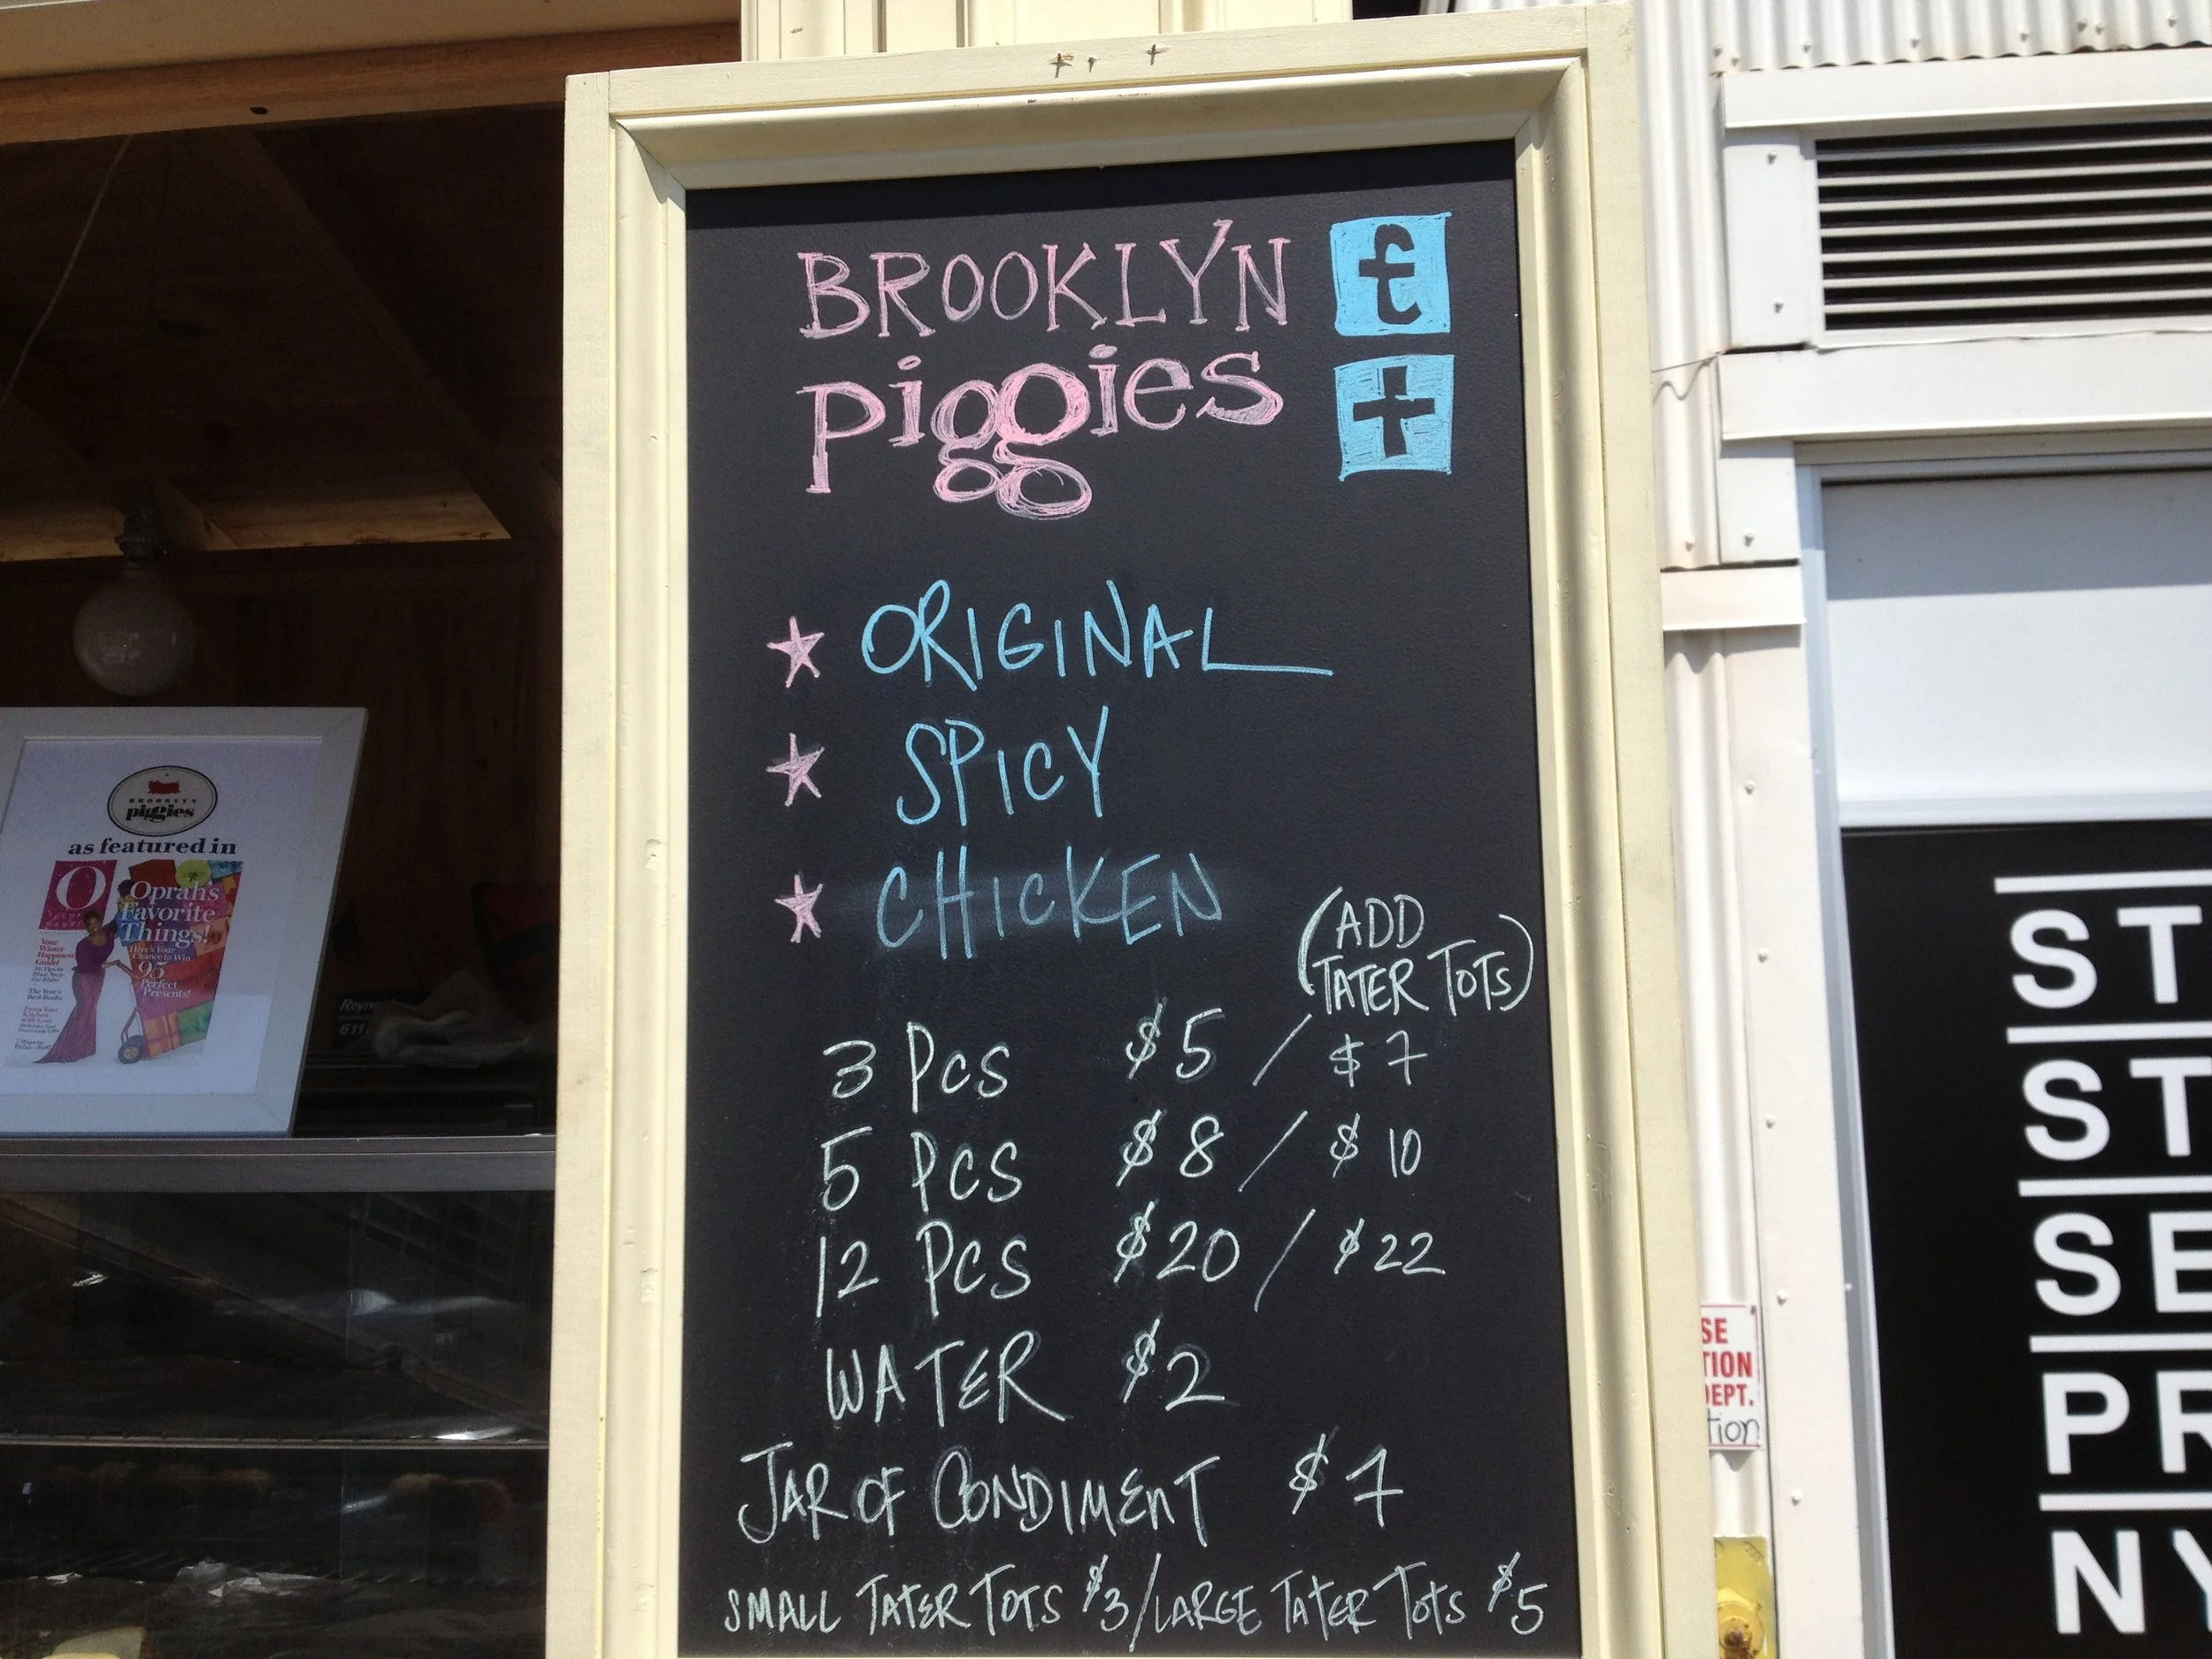 BROOKLYN f
Piggies t
ORIGINAL
SPICY
CHICKEN
(ADD
TATER TOTS)
3 PCS $5 / $7
5 PCS $8 / $10
12 PCS $20 / $22
WATER $2
JAR OF CONDIMENT $7
SMALL TATER TOTS $3/LARGE TATER TOTS $5
BROOKLYN
piggies
as featured in
O
Oprah's
Favorite
Things!
Here's Your
Chance to Win
95
Perfect
Presents!
Your
Winter
Happiness
Guide!
The Year's
Best Books
611
SE
TION
DEPT.
tion
ST
ST
SE
PR
NY